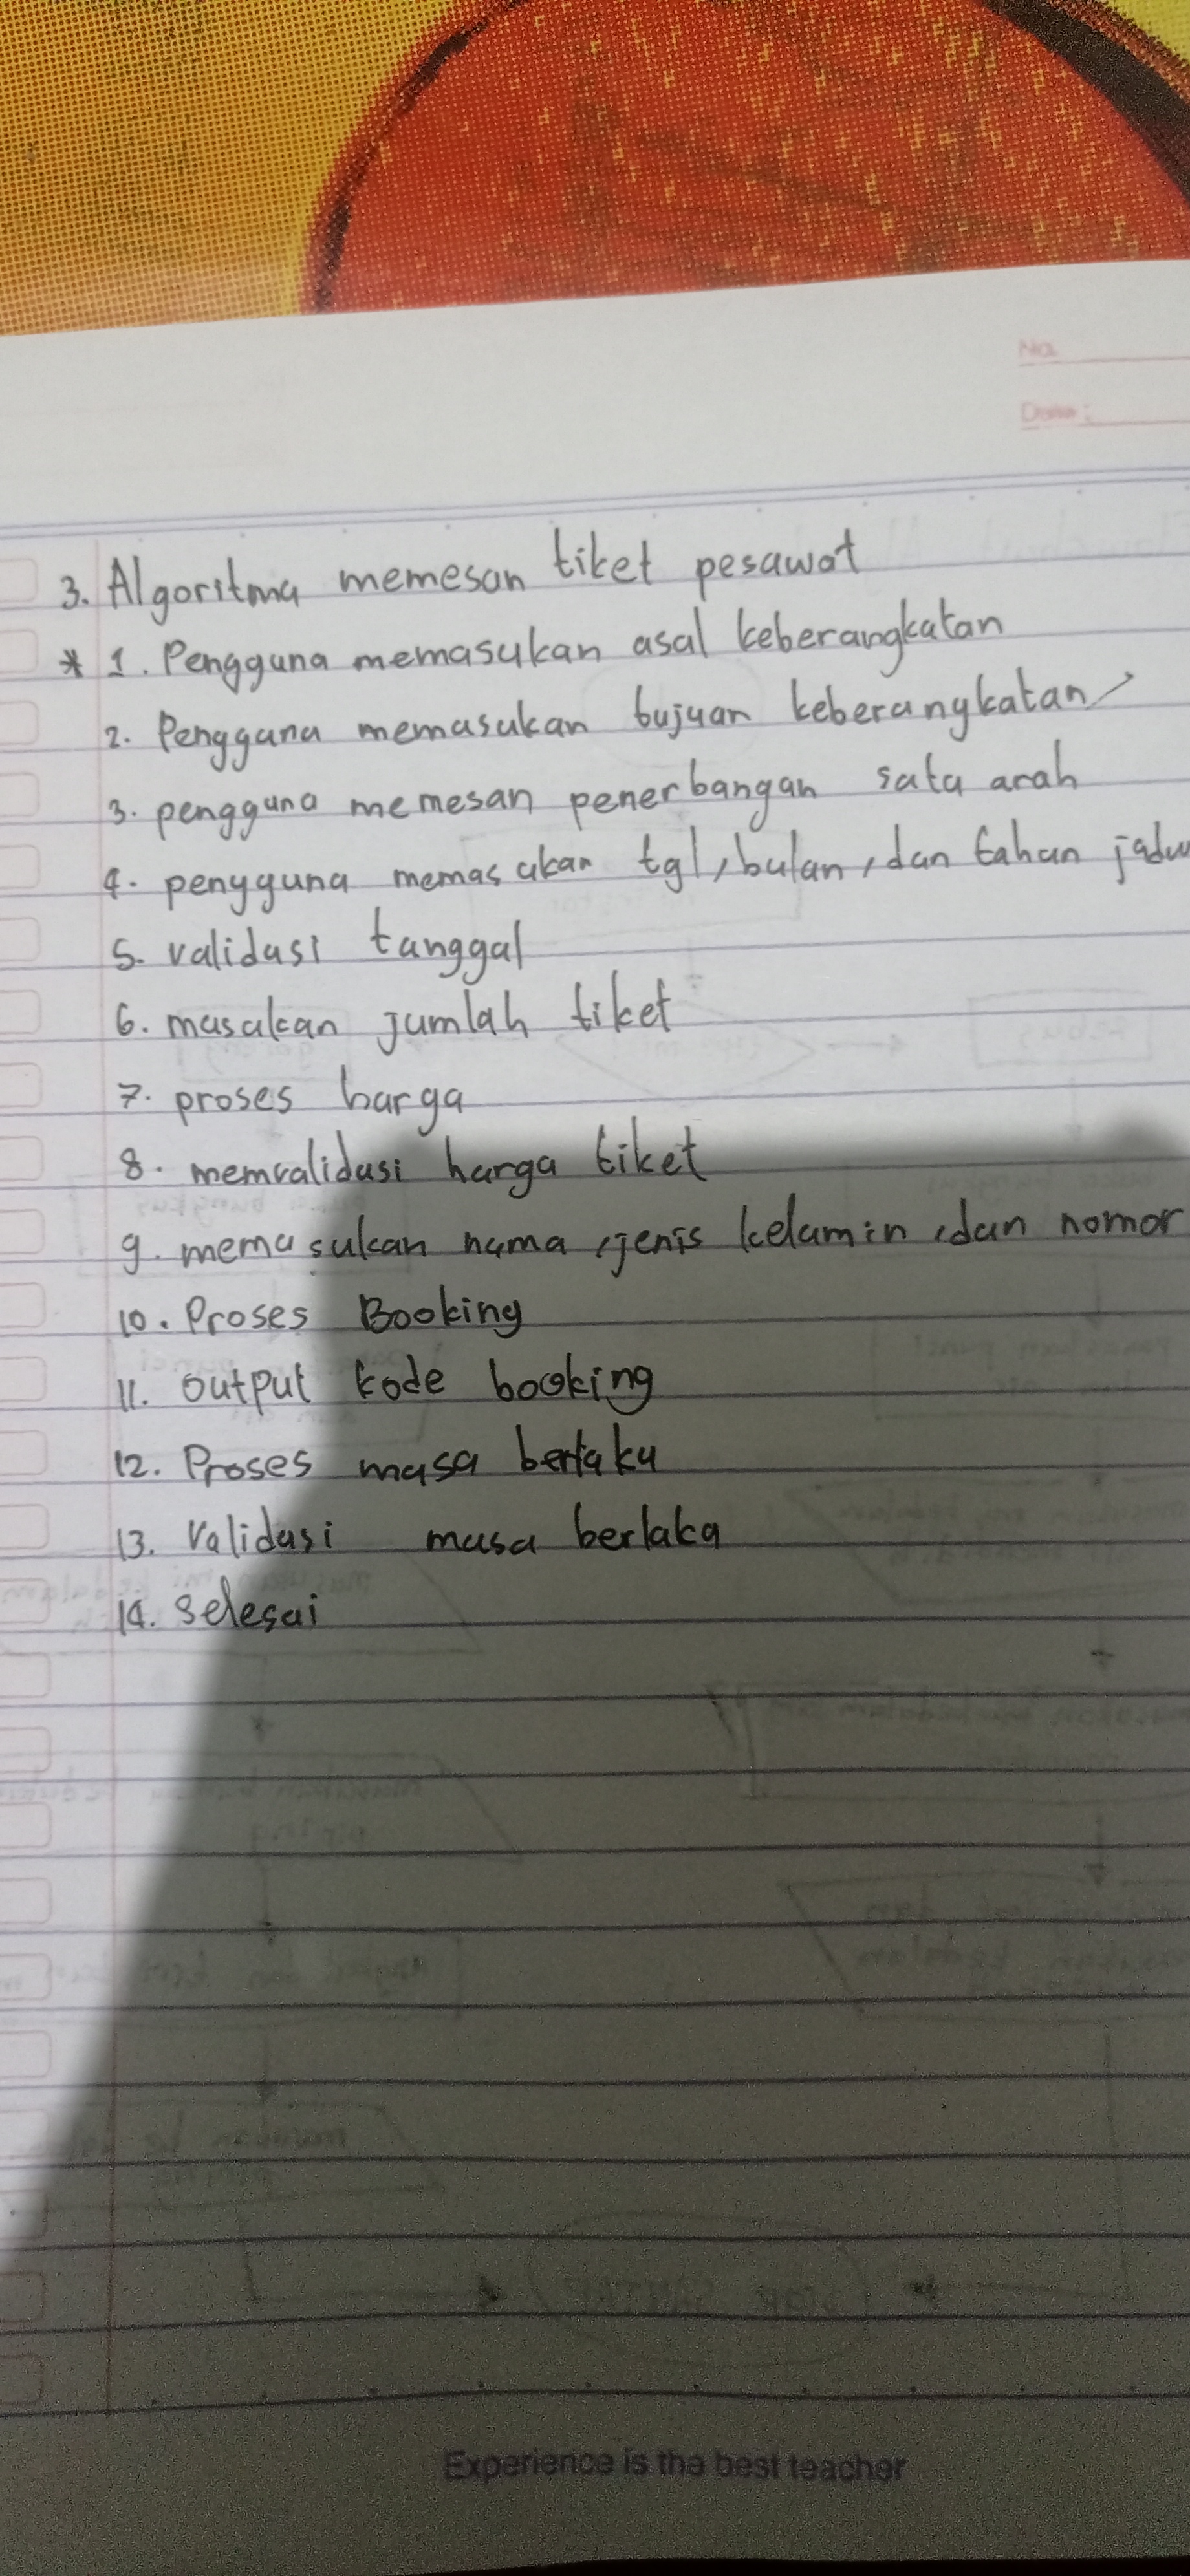 No.
Date :
3. Algoritma memesan tiket pesawat
* 1. Pengguna memasukan asal keberangkatan
2. Pengguna memasukan tujuan keberangkatan
3. pengguna memesan penerbangan satu arah
4. pengguna memasukan tgl, bulan, dan tahun jadw
5. validasi tanggal
6. masukan jumlah tiket
7. proses harga
8. memvalidasi harga tiket
9. memasukan nama, jenis kelamin, dan nomor
10. Proses Booking
11. output kode booking
12. Proses masa berlaku
13. Validasi masa berlaku
14. selesai
Experience is the best teacher